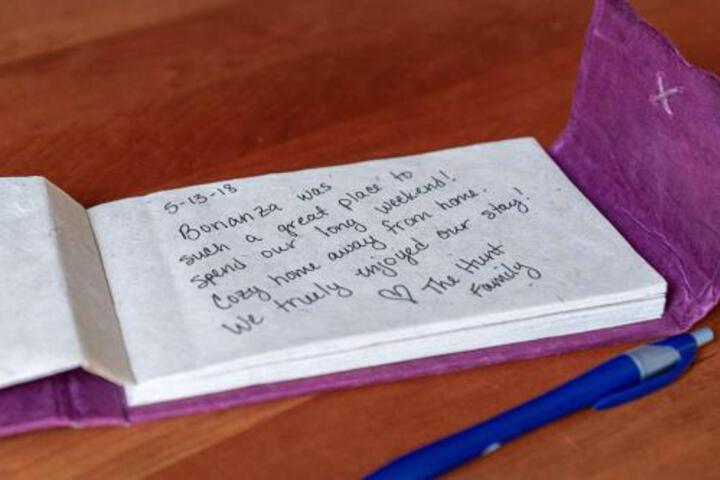 5-13-18
Bonanza was
such a great place to
spend our long weekend!
Cozy home away from home.
We truely enjoyed our stay!
♡ The Hunt
Family